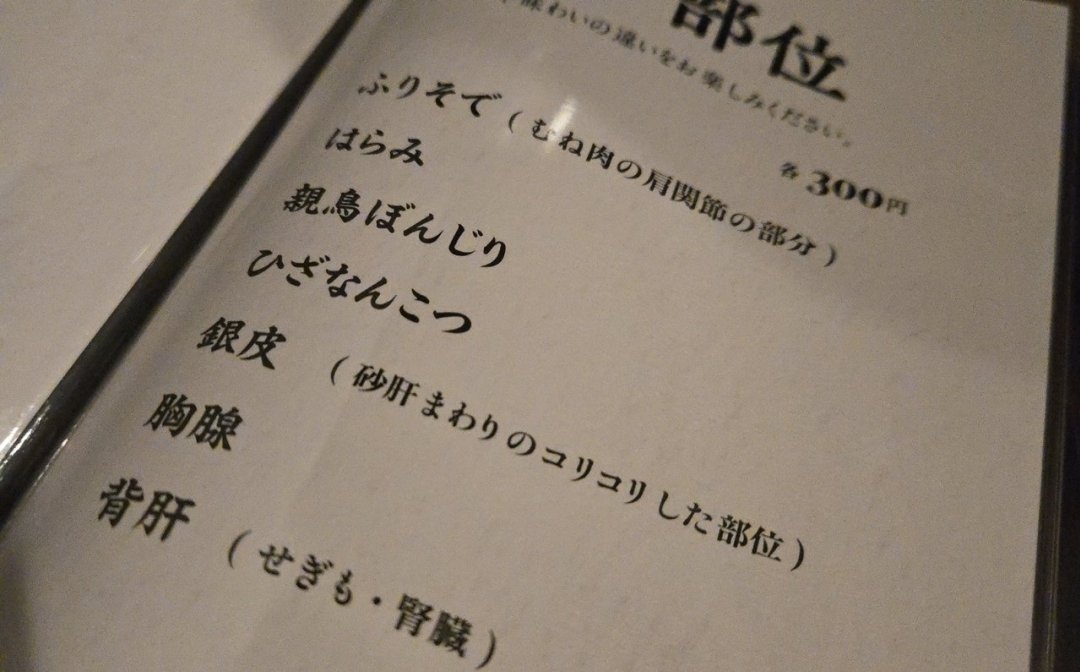 部位
味わいの違いをお楽しみください。
各300円
ふりそで(むね肉の肩関節の部分)
はらみ
親鳥ぼんじり
ひざなんこつ
銀皮 (砂肝まわりのコリコリした部位)
胸腺
背肝 (せぎも・腎臓)